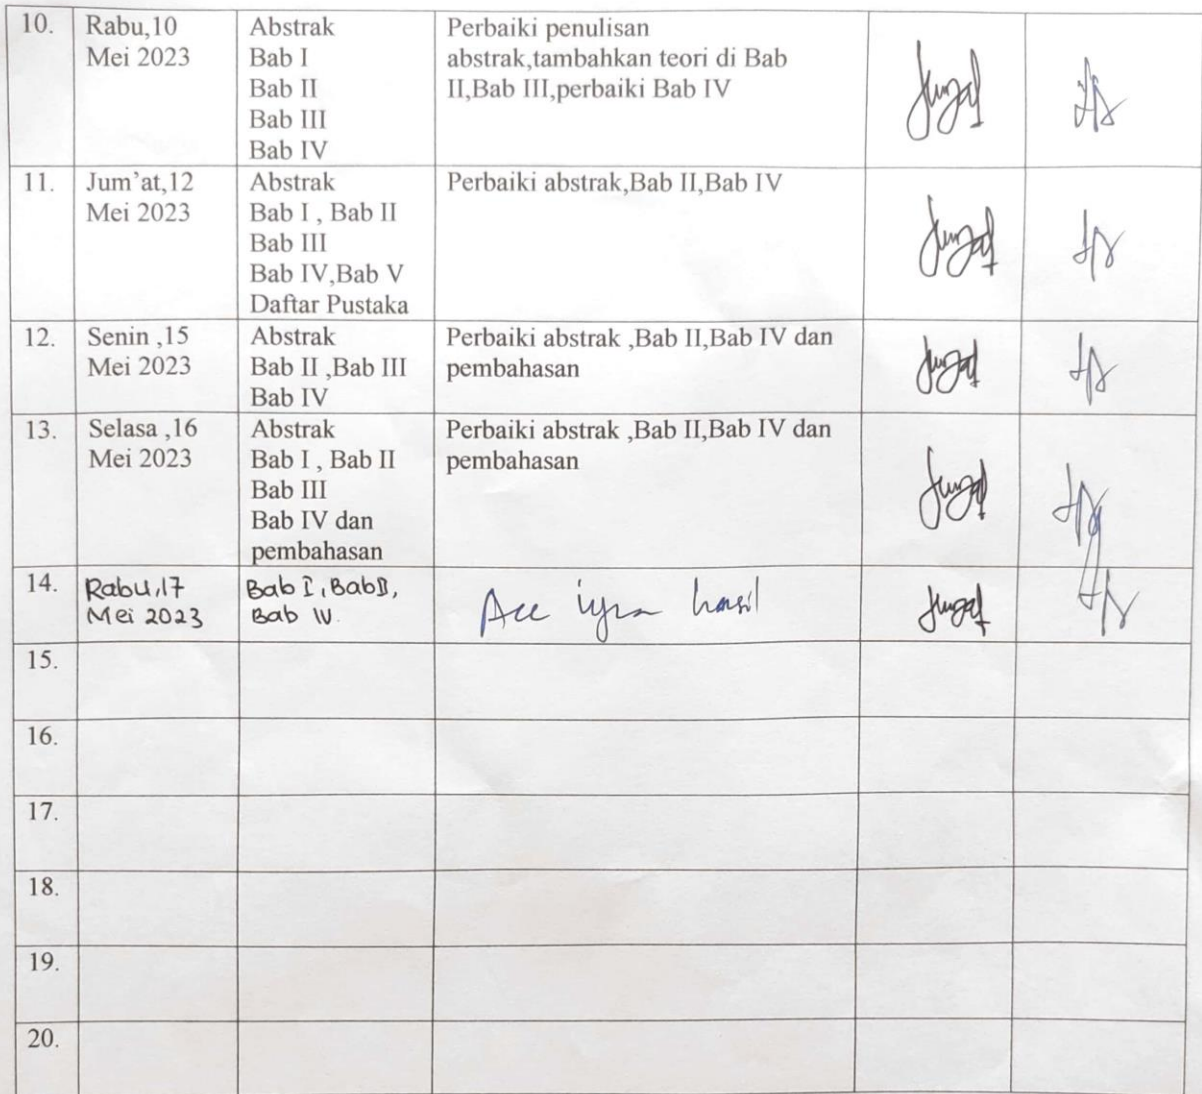 10.
Rabu,10
Mei 2023
Abstrak
Bab I
Bab II
Bab III
Bab IV
Perbaiki penulisan
abstrak,tambahkan teori di Bab
II,Bab III,perbaiki Bab IV
11.
Jum'at,12
Mei 2023
Abstrak
Bab I , Bab II
Bab III
Bab IV,Bab V
Daftar Pustaka
Perbaiki abstrak,Bab II,Bab IV
12.
Senin ,15
Mei 2023
Abstrak
Bab II ,Bab III
Bab IV
Perbaiki abstrak ,Bab II,Bab IV dan
pembahasan
13.
Selasa ,16
Mei 2023
Abstrak
Bab I , Bab II
Bab III
Bab IV dan
pembahasan
Perbaiki abstrak ,Bab II,Bab IV dan
pembahasan
14.
Rabu,17
Mei 2023
Bab I, Bab II,
Bab IV.
Acc hasil
15.
16.
17.
18.
19.
20.